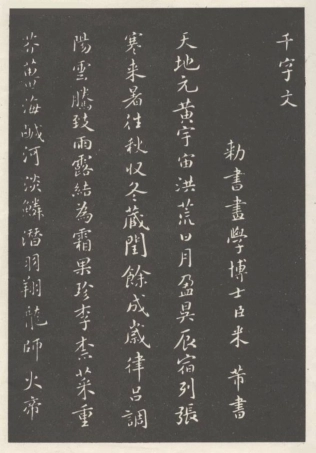 千字文
勅書畫學博士臣米芾書
天地元黃宇宙洪荒日月盈昃辰宿列張
寒来暑往秋收冬蔵閏餘成歲律呂調
陽雲騰致雨露結為霜果珍李柰菜重
芥薑海鹹河淡鱗潛羽翔龍師火帝